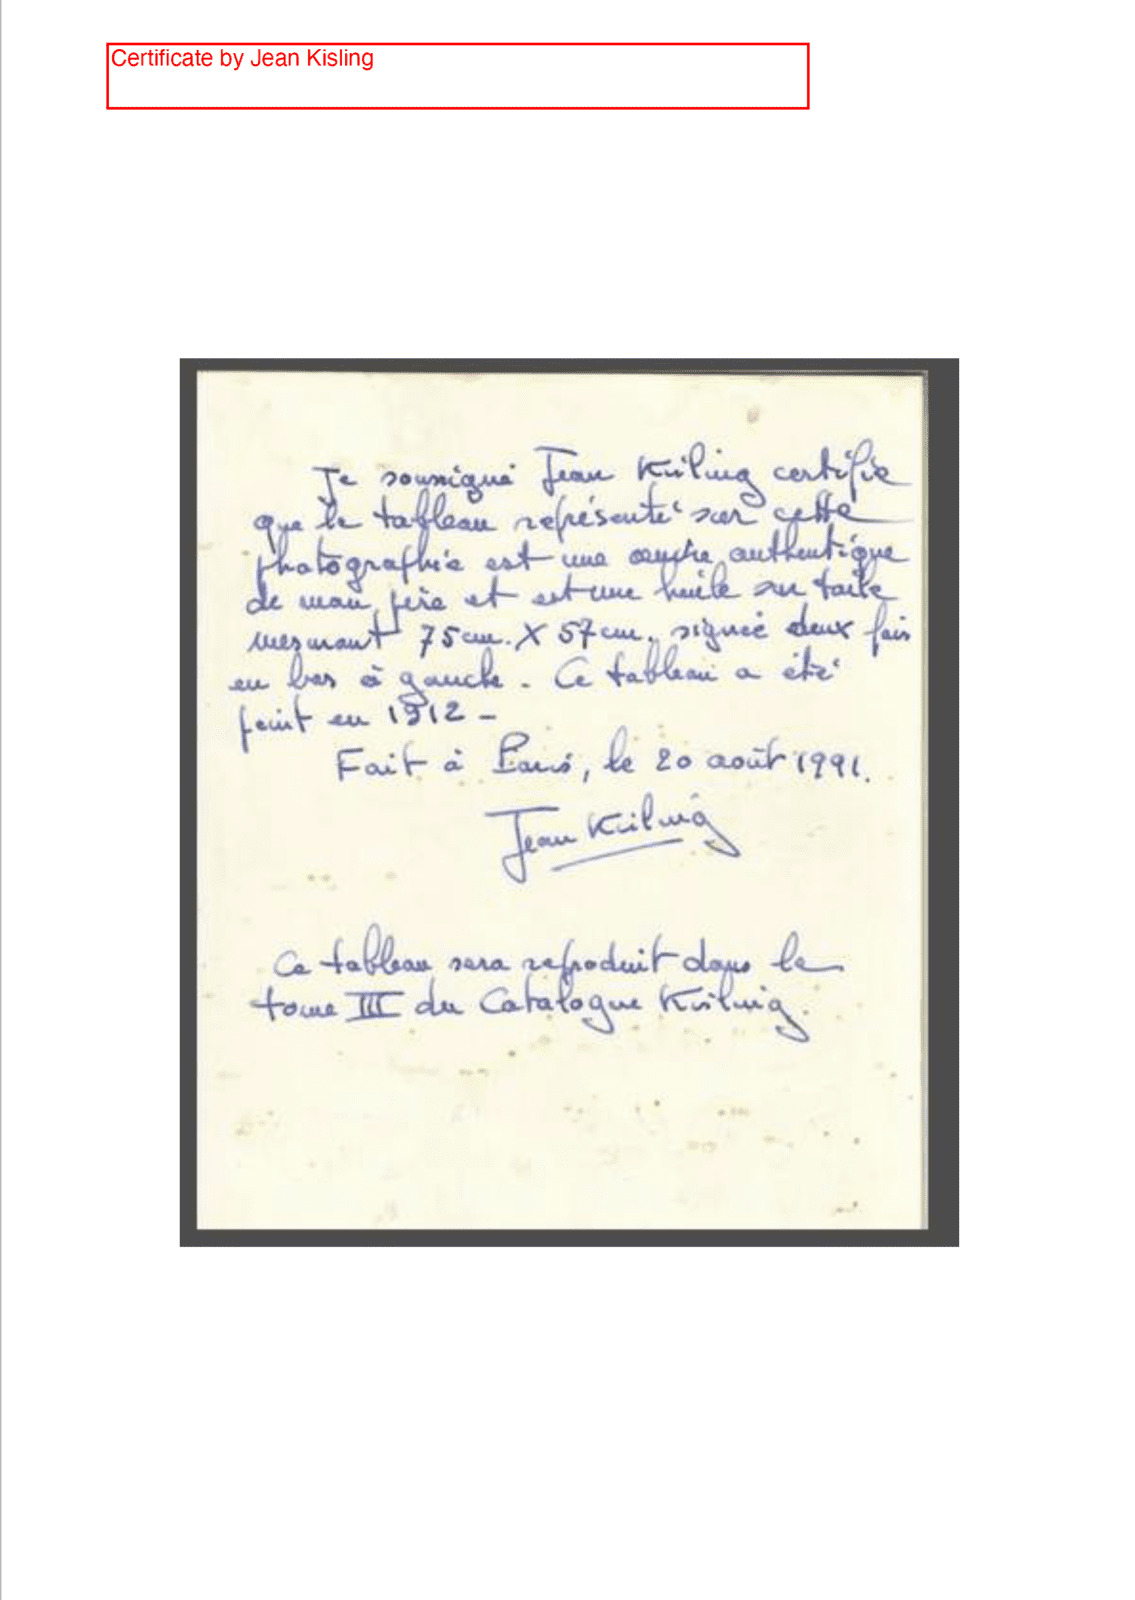 Certificate by Jean Kisling
Je soussigné Jean Kisling certifie
que le tableau représenté sur cette
photographie est une œuvre authentique
de mon père et est une huile sur toile
mesurant 75cm. X 57cm. signée deux fois
en bas à gauche. Ce tableau a été
peint en 1912 -
Fait à Paris, le 20 août 1991.
Jean Kisling
Ce tableau sera reproduit dans le
tome III du Catalogue Kisling.